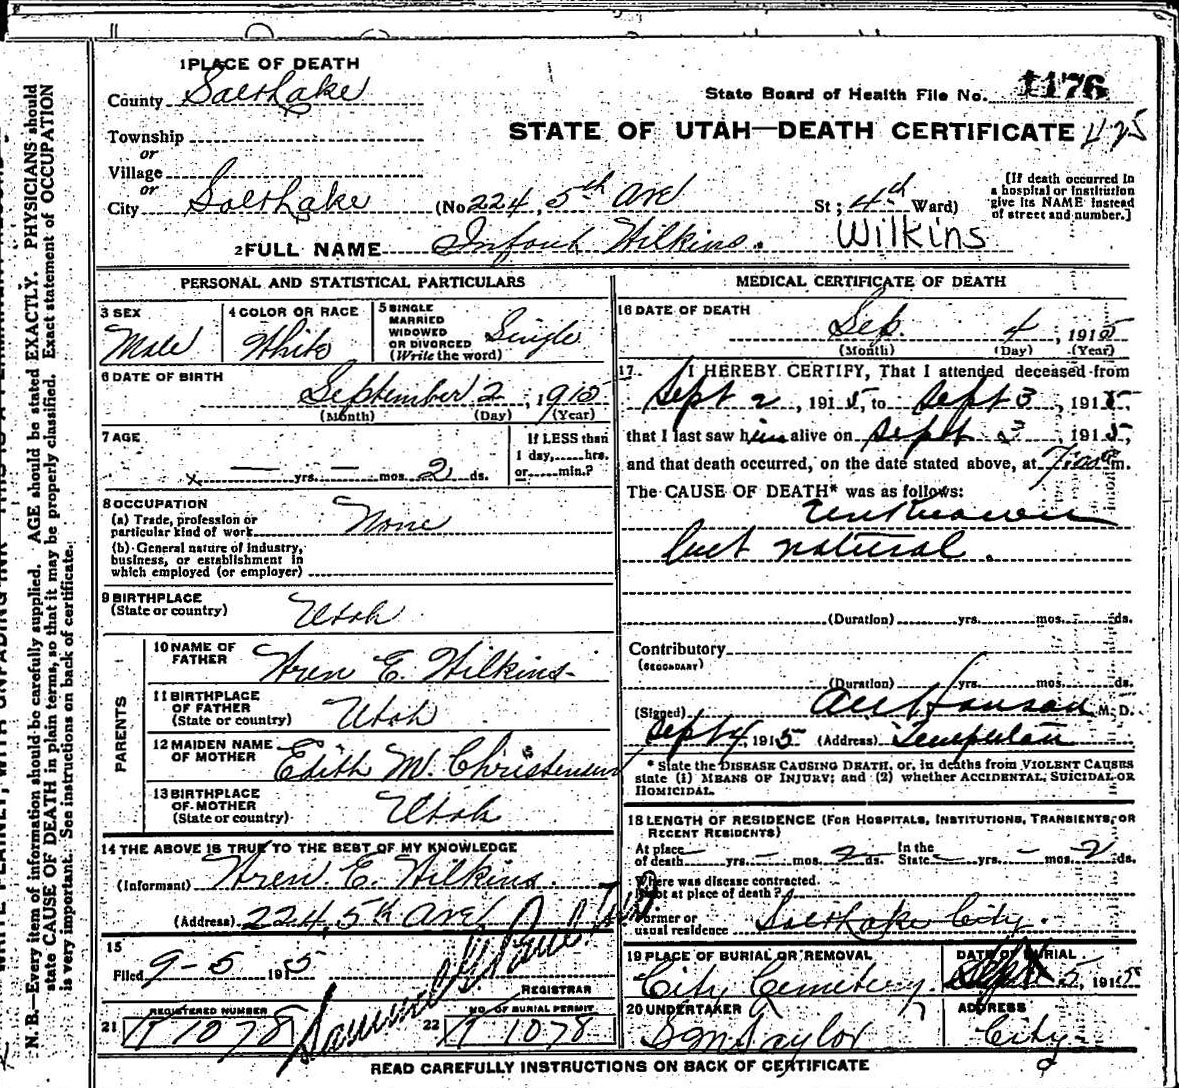 1 PLACE OF DEATH
County Salt Lake
Township
or
Village
or
City Salt Lake (No 224, 5th Ave St; 4th Ward)
State Board of Health File No. 1176
STATE OF UTAH—DEATH CERTIFICATE 425
[If death occurred in a hospital or institution give its NAME instead of street and number.]
2 FULL NAME Infant Wilkins. Wilkins
PERSONAL AND STATISTICAL PARTICULARS
3 SEX Male
4 COLOR OR RACE White
5 SINGLE MARRIED WIDOWED OR DIVORCED (Write the word) Single
6 DATE OF BIRTH
September 2, 1915
(Month) (Day) (Year)
7 AGE
— yrs. — mos. 2 ds.
If LESS than 1 day, hrs. or min.?
8 OCCUPATION
(a) Trade, profession or particular kind of work None
(b) General nature of industry, business, or establishment in which employed (or employer)
9 BIRTHPLACE
(State or country) Utah
PARENTS
10 NAME OF FATHER Wren E. Wilkins
11 BIRTHPLACE OF FATHER (State or country) Utah
12 MAIDEN NAME OF MOTHER Edith M. Christensen
13 BIRTHPLACE OF MOTHER (State or country) Utah
14 THE ABOVE IS TRUE TO THE BEST OF MY KNOWLEDGE
(Informant) Wren E. Wilkins.
(Address) 224, 5th Ave
15
Filed 9-5 1915
REGISTRAR
21 REGISTERED NUMBER 1078
22 NO. OF BURIAL PERMIT 1078
MEDICAL CERTIFICATE OF DEATH
16 DATE OF DEATH
Sep. 4, 1915
(Month) (Day) (Year)
17 I HEREBY CERTIFY, That I attended deceased from
Sept 2, 1915, to Sept 3, 1915,
that I last saw him alive on Sept 3, 1915,
and that death occurred, on the date stated above, at m.
The CAUSE OF DEATH* was as follows:
Unknown
but natural.
(Duration) yrs. mos. ds.
Contributory
(SECONDARY)
(Duration) yrs. mos. ds.
(Signed) Hanson M. D.
Sept 4, 1915 (Address)
* State the DISEASE CAUSING DEATH, or, in deaths from VIOLENT CAUSES
state (1) MEANS OF INJURY; and (2) whether ACCIDENTAL, SUICIDAL OR
HOMICIDAL.
18 LENGTH OF RESIDENCE (FOR HOSPITALS, INSTITUTIONS, TRANSIENTS, OR
RECENT RESIDENTS)
At place of death — yrs. — mos. 2 ds. In the State — yrs. — mos. 2 ds.
Where was disease contracted
if not at place of death?
Former or usual residence Salt Lake City.
19 PLACE OF BURIAL OR REMOVAL City Cemetery.
DATE OF BURIAL Sept 5, 1915
20 UNDERTAKER S M Taylor
ADDRESS City
READ CAREFULLY INSTRUCTIONS ON BACK OF CERTIFICATE
N. B.—Every item of information should be carefully supplied. AGE should be stated EXACTLY. PHYSICIANS should
state CAUSE OF DEATH in plain terms, so that it may be properly classified. Exact statement of OCCUPATION
is very important. See instructions on back of certificate.